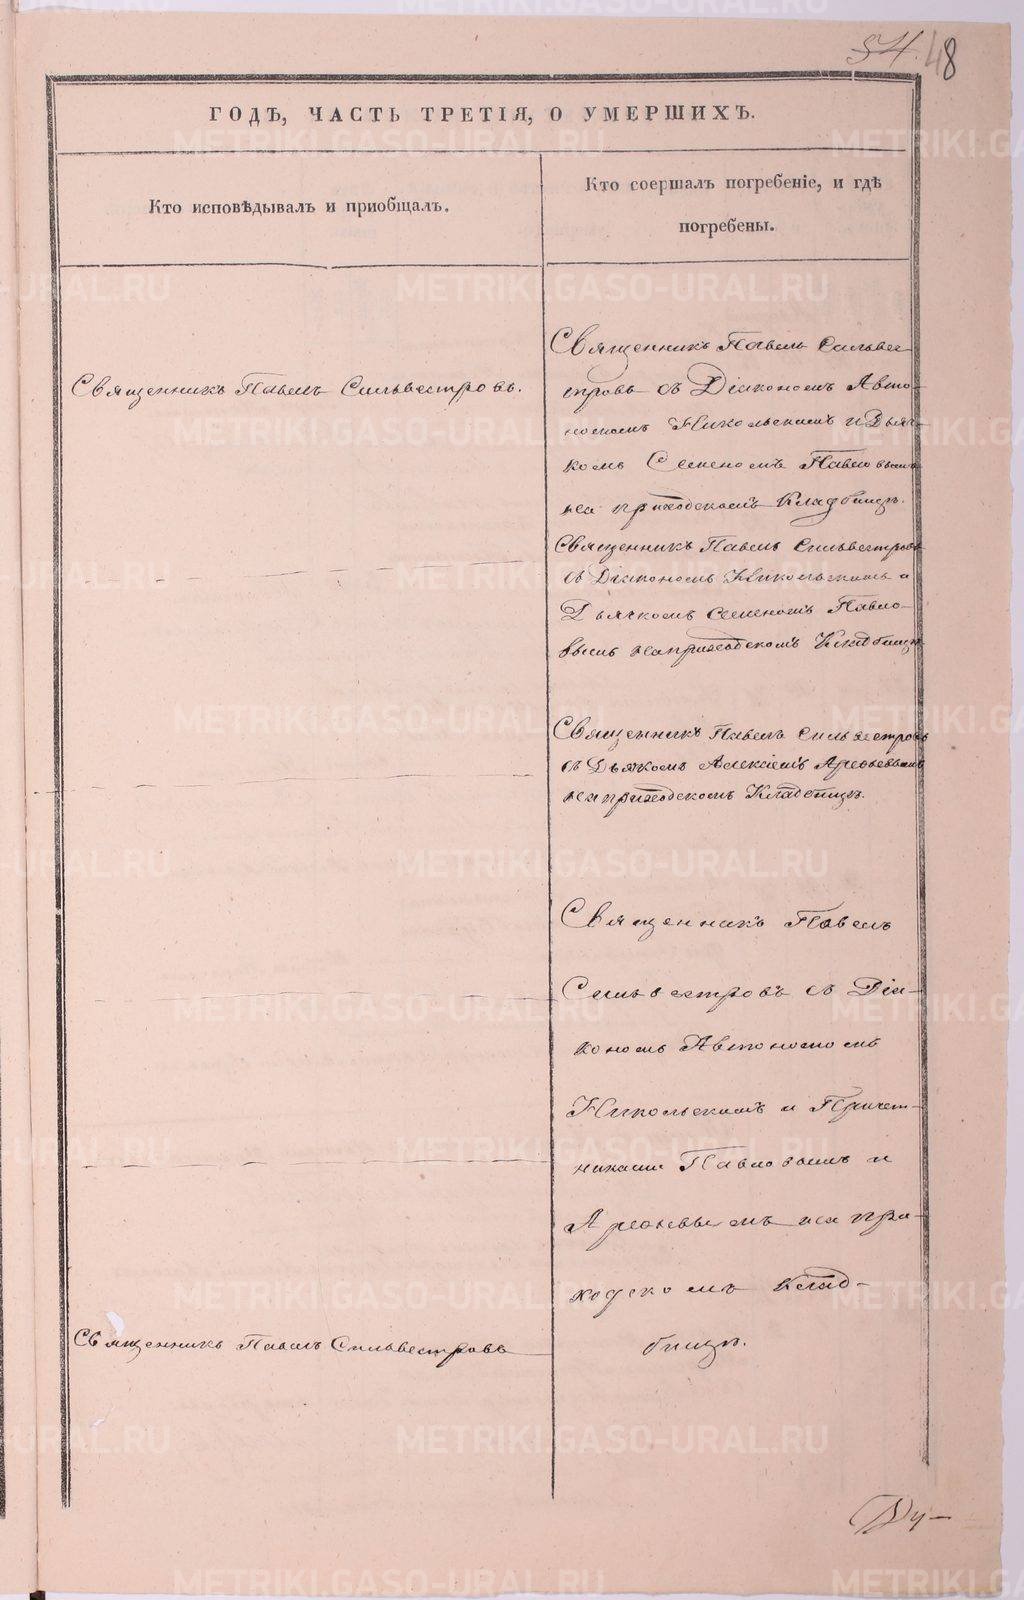 54. 48
ГОДЪ, ЧАСТЬ ТРЕТІЯ, О УМЕРШИХЪ.
Кто исповѣдывалъ и приобщалъ.
Кто соершалъ погребеніе, и гдѣ
погребены.
Священникъ Павелъ Сильвестровъ.
Священникъ Павелъ Сильвес
тровъ съ Діакономъ Авто-
номомъ Никольскимъ и Дьяч-
комъ Семеномъ Павловымъ
на приходскомъ Кладбищѣ.
Священникъ Павелъ Сильвестровъ
съ Діакономъ Никольскимъ и
Дьячкомъ Семеномъ Павло-
вымъ на приходскомъ Кладбищѣ
Священникъ Павелъ Сильвестровъ
съ Дьячкомъ Алексіемъ Арефьевымъ
на приходскомъ Кладбищѣ.
Священникъ Павелъ
Сильвестровъ съ Діа-
кономъ Автономомъ
Никольскимъ и Причет-
никами Павловымъ и
Арефьевымъ на при-
ходскомъ Клад-
бищѣ.
Священникъ Павелъ Сильвестровъ
METRIKI.GASO-URAL.RU